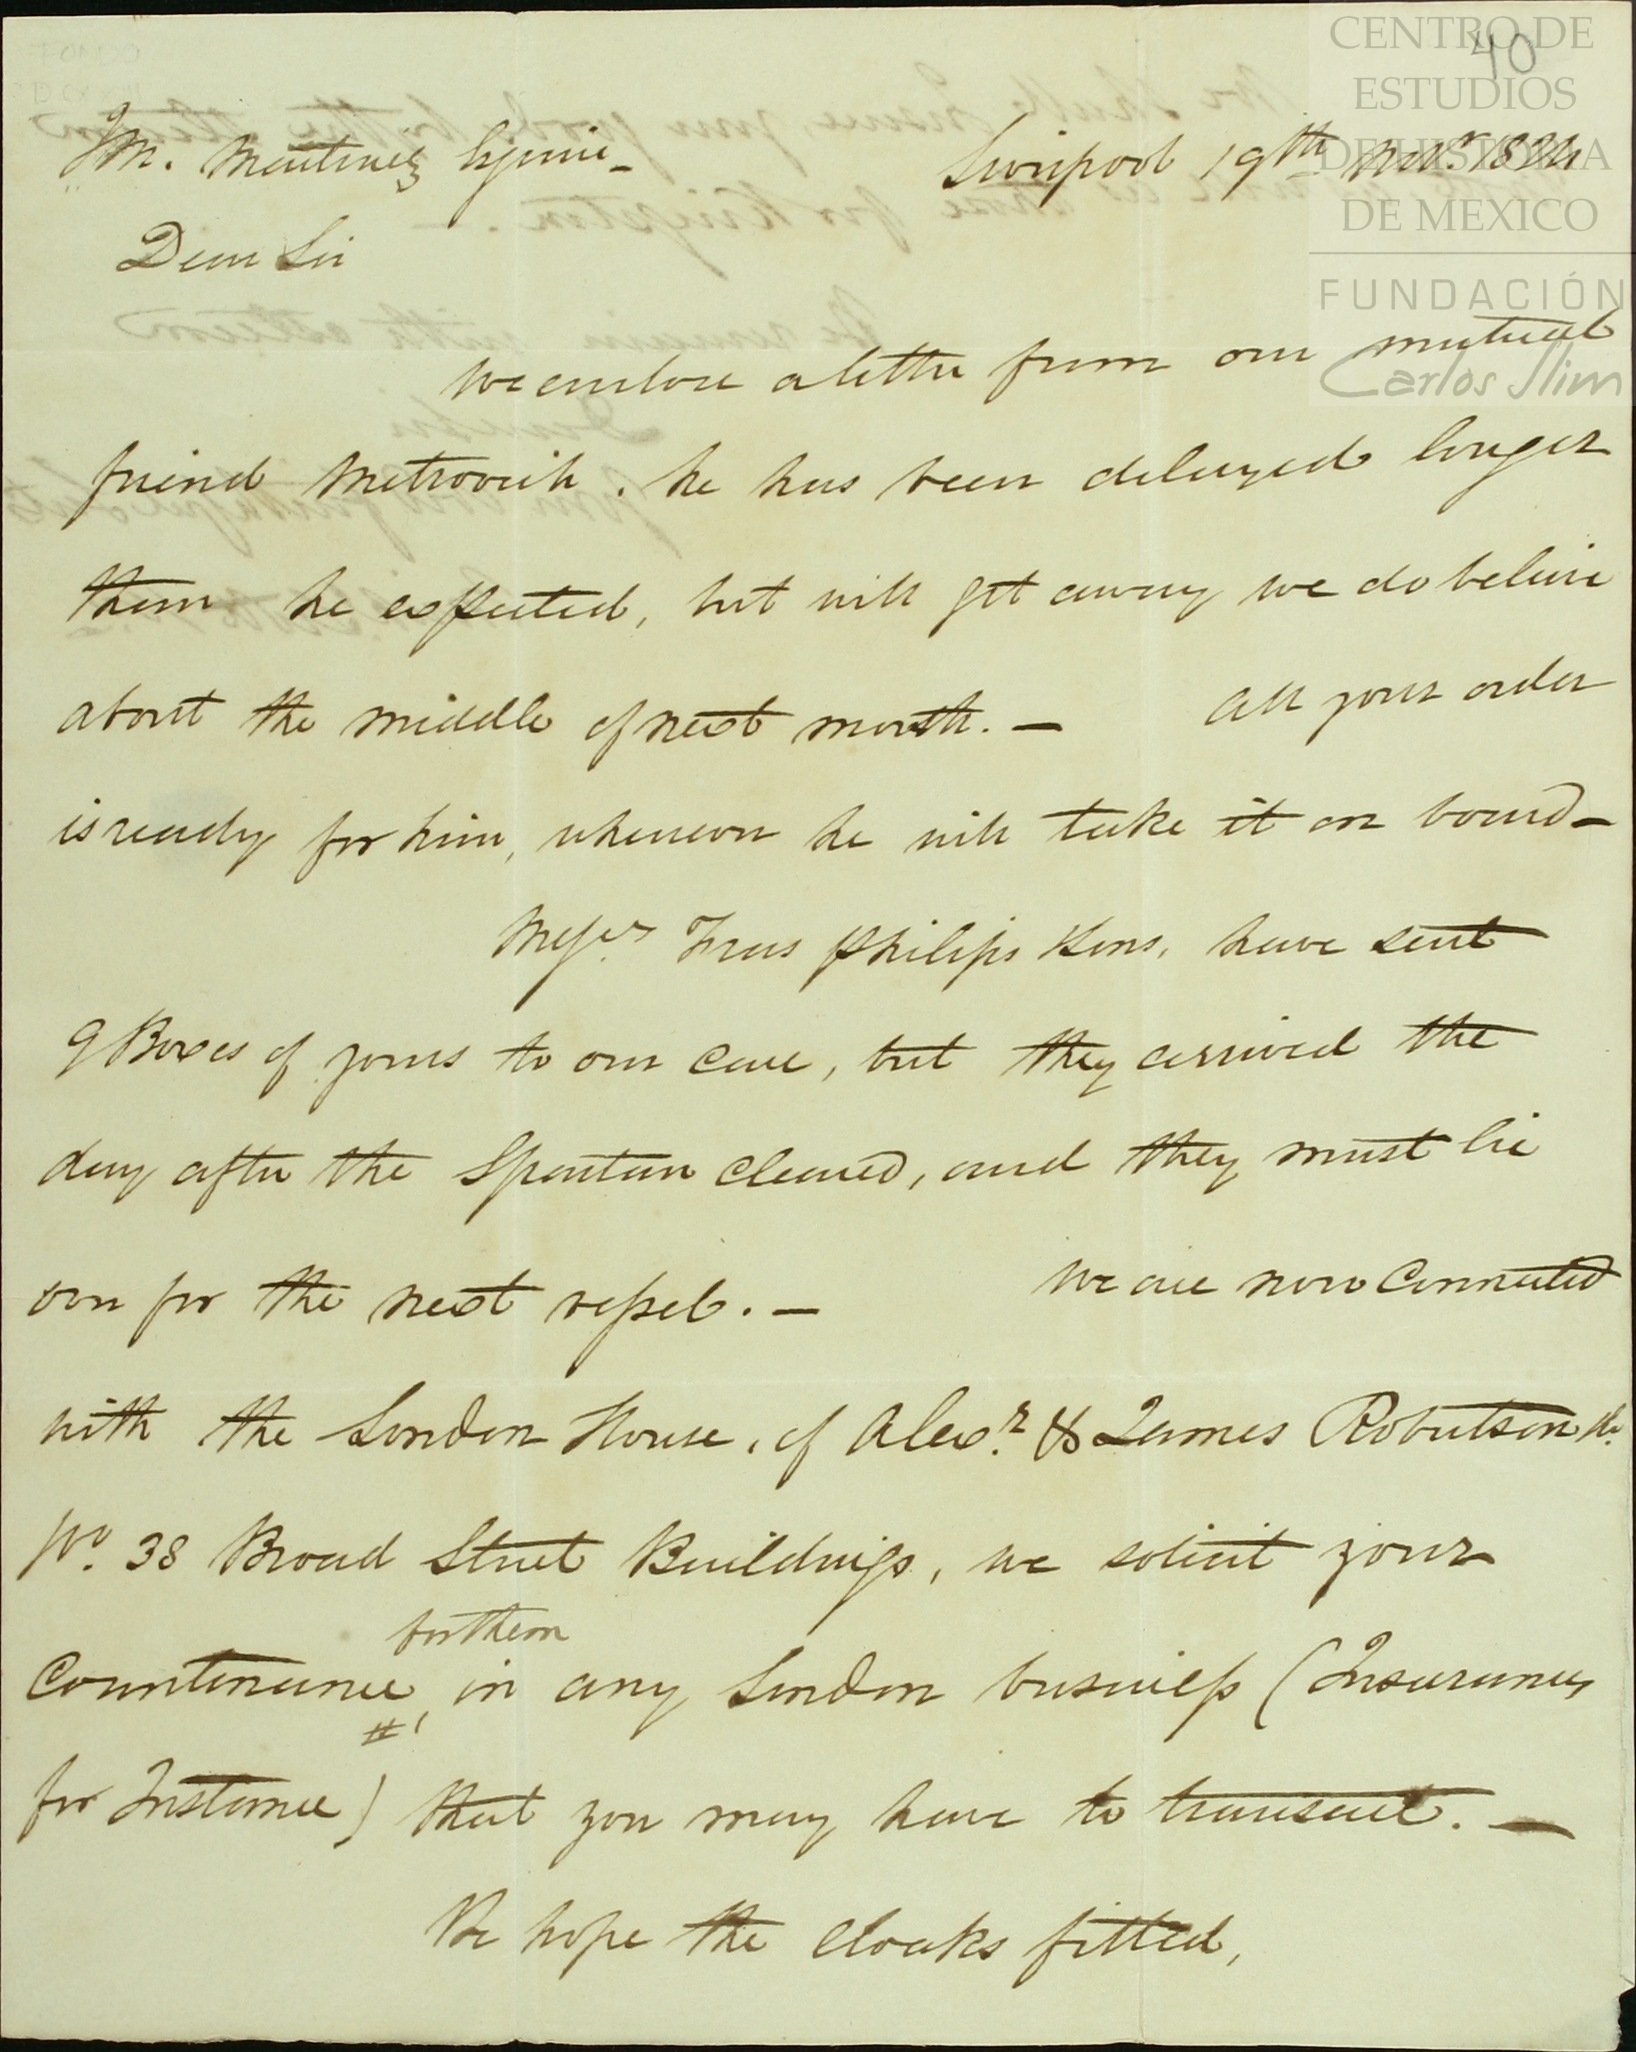 40
CENTRO DE
ESTUDIOS
DE HISTORIA
DE MEXICO
FUNDACIÓN
Carlos Slim
J M. Martinez Esquire - Liverpool 19th Novr. 1824
Dear Sir
We enclose a letter from our mutual
friend Metrovich. he has been delayed longer
than he expected, but will get away we do believe
about the middle of next month. — All your order
is ready for him, whenever he will take it on board —
Messrs. Fras Philips & Sons, have sent
9 Boxes of yours to our care, but they arrived the
day after the Spartan cleared, and they must lie
over for the next vessel. — We are now connected
with the London House, of Alexr. & James Robertson
No. 38 Broad Street Buildings, we solicit your
for them
Countenance #, in any London business (Insurances
for Instance) that you may have to transact. —
We hope the cloaks fitted,